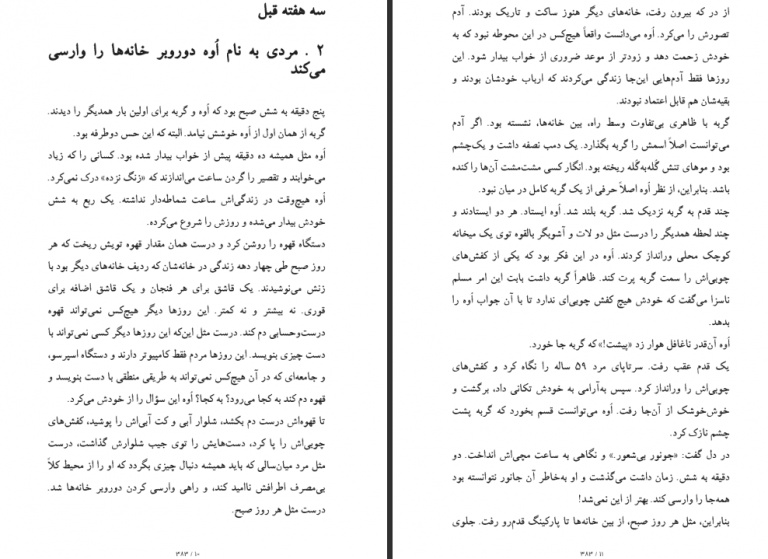 سه هفته قبل
۲ . مردی به نام اُوه دوروبر خانه‌ها را وارسی
می‌کند
پنج دقیقه به شش صبح بود که اُوه و گربه برای اولین بار همدیگر را دیدند.
گربه از همان اول از اُوه خوشش نیامد. البته که این حس دوطرفه بود.
اُوه مثل همیشه ده دقیقه پیش از خواب بیدار شده بود. کسانی را که زیاد
می‌خوابند و تقصیر را گردن ساعت می‌اندازند که «زنگ نزده» درک نمی‌کرد.
اُوه هیچ‌وقت در زندگی‌اش ساعت شماطه‌دار نداشته. یک ربع به شش
خودش بیدار می‌شده و روزش را شروع می‌کرده.
دستگاه قهوه را روشن کرد و درست همان مقدار قهوه تویش ریخت که هر
روز صبح طی چهار دهه زندگی در خانه‌شان که ردیف خانه‌های دیگر بود با
زنش می‌نوشیدند. یک قاشق برای هر فنجان و یک قاشق اضافه برای
قوری. نه بیشتر و نه کمتر. این روزها دیگر هیچ‌کس نمی‌تواند قهوه
درست‌وحسابی دم کند. درست مثل این‌که این روزها دیگر کسی نمی‌تواند با
دست چیزی بنویسد. این روزها مردم فقط کامپیوتر دارند و دستگاه اسپرسو،
و جامعه‌ای که در آن هیچ‌کس نمی‌تواند به طریقی منطقی با دست بنویسد و
قهوه دم کند به کجا می‌رود؟ به کجا؟ اُوه این سؤال را از خودش می‌کرد.
تا قهوه‌اش درست دم بکشد، شلوار آبی و کت آبی‌اش را پوشید، کفش‌های
چوبی‌اش را پا کرد، دست‌هایش را توی جیب شلوارش گذاشت، درست
مثل مرد میان‌سالی که باید همیشه دنبال چیزی بگردد که او را از محیط کلاً
بی‌مصرف اطرافش ناامید کند، و راهی وارسی کردن دوروبر خانه‌ها شد.
درست مثل هر روز صبح.
۳۸۳ / ۱۰
از در که بیرون رفت، خانه‌های دیگر هنوز ساکت و تاریک بودند. آدم
تصورش را می‌کرد. اُوه می‌دانست واقعاً هیچ‌کس در این محوطه نبود که به
خودش زحمت دهد و زودتر از موعد ضروری از خواب بیدار شود. این
روزها فقط آدم‌هایی این‌جا زندگی می‌کردند که ارباب خودشان بودند و
بقیه‌شان هم قابل اعتماد نبودند.
گربه با ظاهری بی‌تفاوت وسط راه، بین خانه‌ها، نشسته بود. اگر آدم
می‌توانست اصلاً اسمش را گربه بگذارد. یک دمب نصفه داشت و یک‌چشم
بود و موهای تنش گُله‌به‌گُله ریخته بود. انگار کسی مشت‌مشت آن‌ها را کنده
باشد. بنابراین، از نظر اُوه اصلاً حرفی از یک گربه کامل در میان نبود.
چند قدم به گربه نزدیک شد. گربه بلند شد. اُوه ایستاد. هر دو ایستادند و
چند لحظه همدیگر را درست مثل دو لات و آشوبگر بالقوه توی یک میخانه
کوچک محلی ورانداز کردند. اُوه در این فکر بود که یکی از کفش‌های
چوبی‌اش را سمت گربه پرت کند. ظاهراً گربه داشت بابت این امر مسلم
ناسزا می‌گفت که خودش هیچ کفش چوبی‌ای ندارد تا با آن جواب اُوه را
بدهد.
اُوه آن‌قدر ناغافل هوار زد «پیشت!» که گربه جا خورد.
یک قدم عقب رفت. سرتاپای مرد ۵۹ ساله را نگاه کرد و کفش‌های
چوبی‌اش را ورانداز کرد. سپس به‌آرامی به خودش تکانی داد، برگشت و
خوش‌خوشک از آن‌جا رفت. اُوه می‌توانست قسم بخورد که گربه پشت
چشم نازک کرد.
در دل گفت: «جونور بی‌شعور.» و نگاهی به ساعت مچی‌اش انداخت. دو
دقیقه به شش. زمان داشت می‌گذشت و او به‌خاطر آن جانور نتوانسته بود
همه‌جا را وارسی کند. بهتر از این نمی‌شد!
بنابراین، مثل هر روز صبح، از بین خانه‌ها تا پارکینگ قدم‌رو رفت. جلوی
۳۸۳ / ۱۱